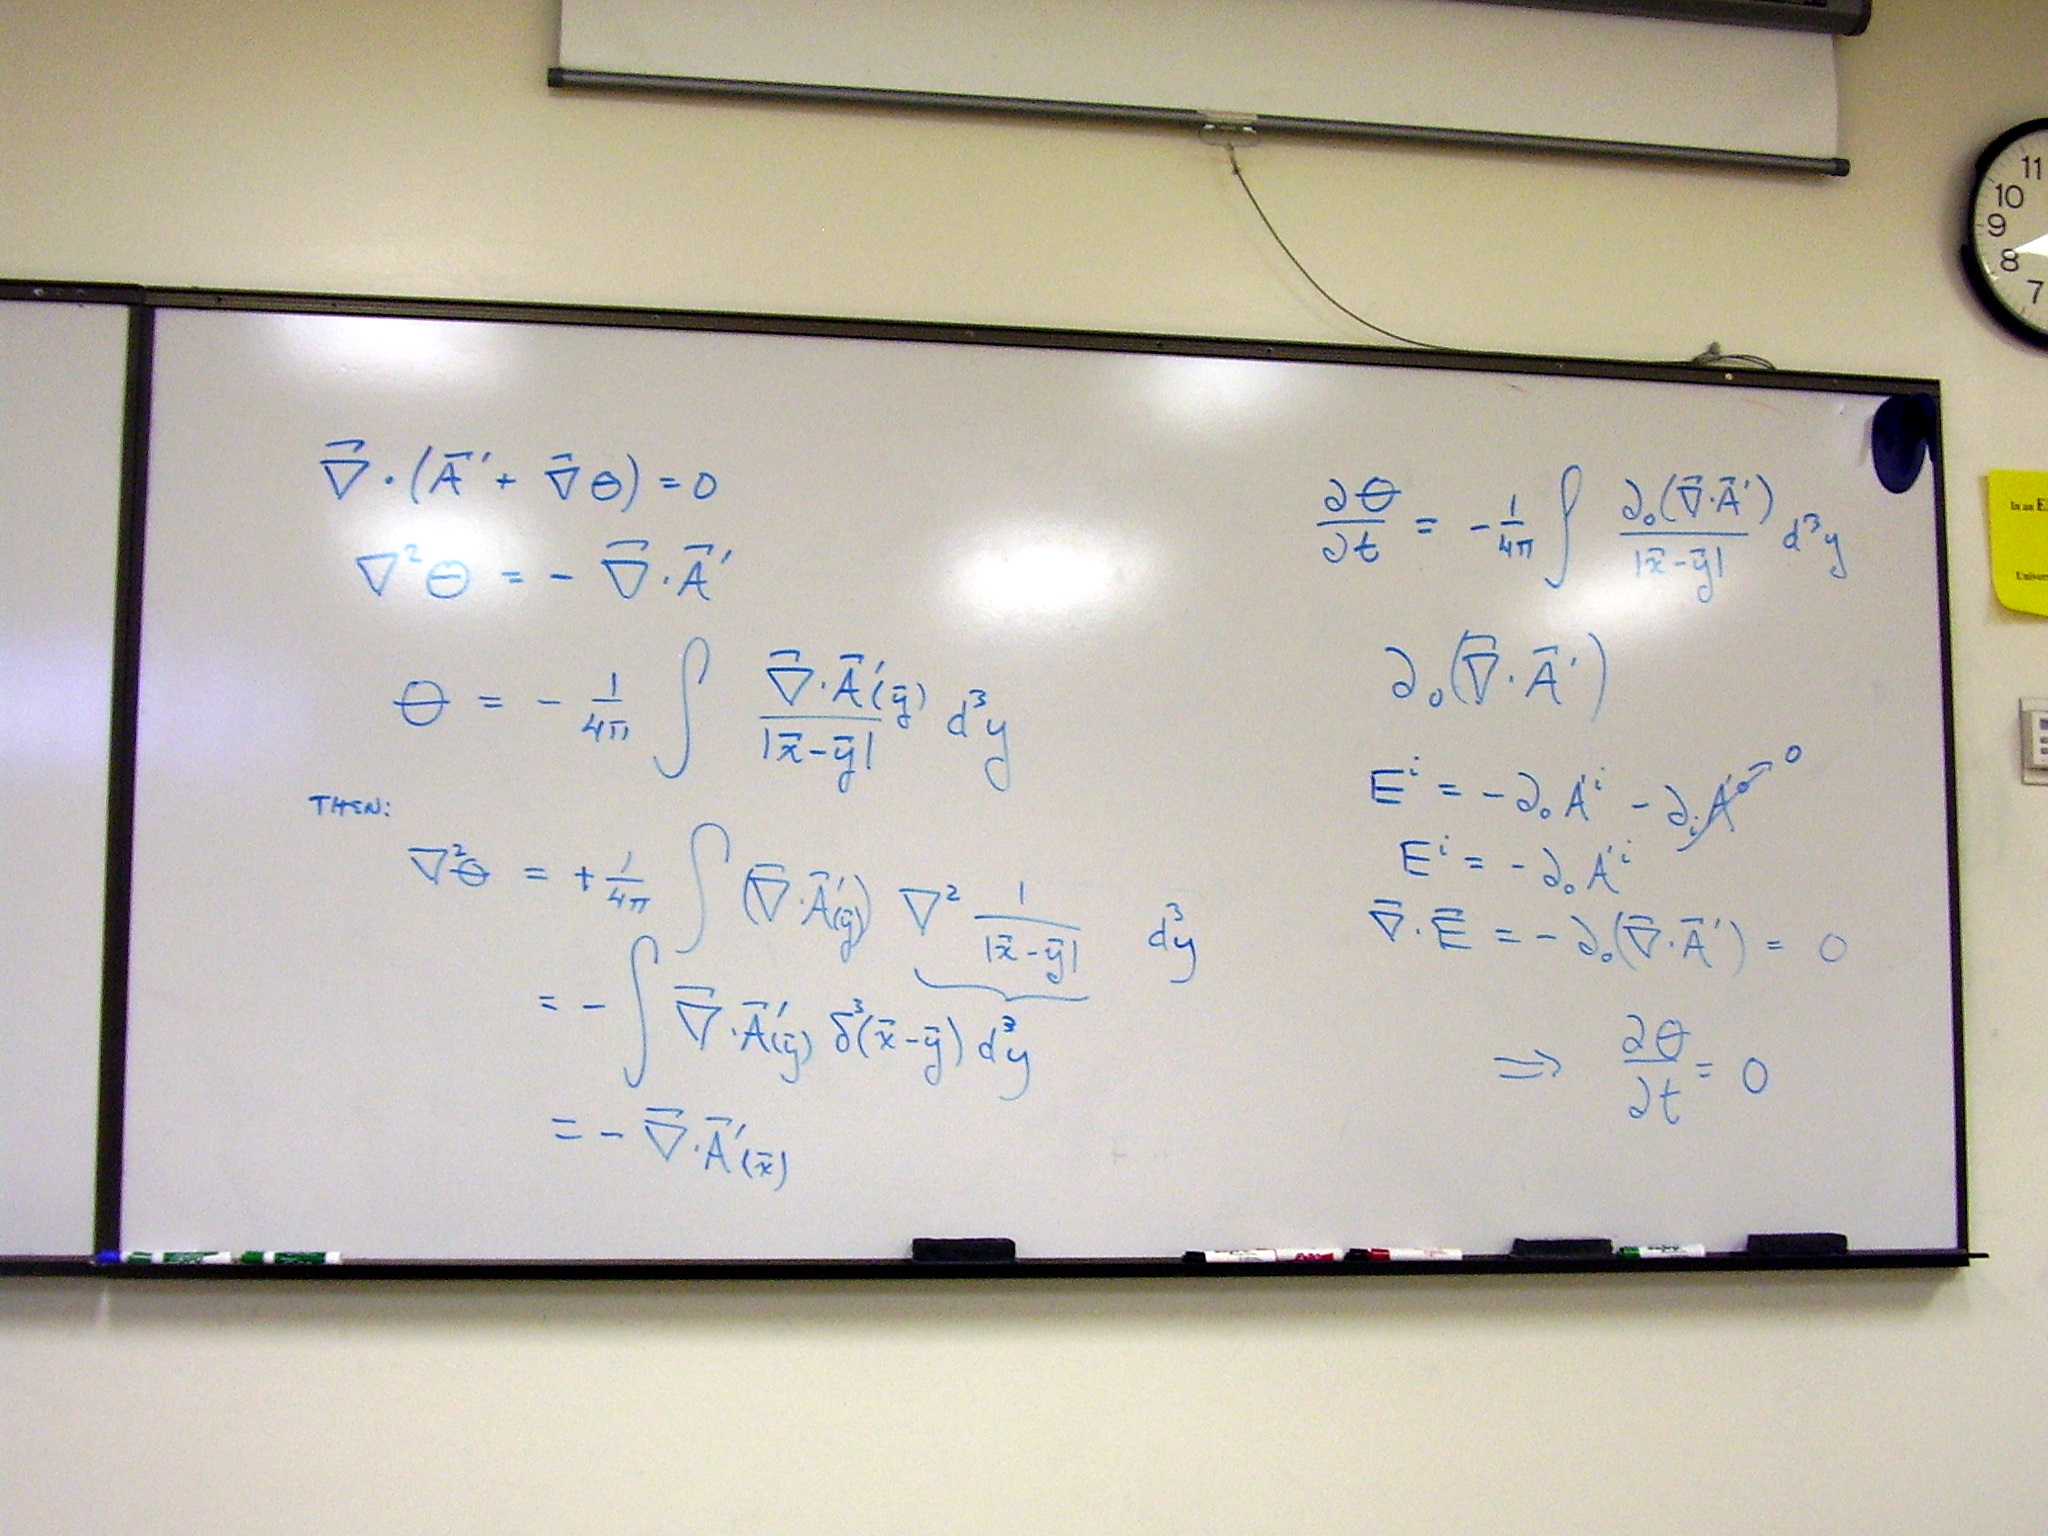 ∇⃗·(A⃗′ + ∇⃗θ) = 0
∇²θ = - ∇⃗·A⃗′
θ = - 1/4π ∫ ∇⃗·A⃗′(y⃗)/|x⃗-y⃗| d³y
THEN:
∇²θ = + 1/4π ∫ (∇⃗·A⃗′(y⃗)) ∇² 1/|x⃗-y⃗| d³y
= - ∫ ∇⃗·A⃗′(y⃗) δ³(x⃗-y⃗) d³y
= - ∇⃗·A⃗′(x⃗)
∂θ/∂t = - 1/4π ∫ ∂₀(∇⃗·A⃗′)/|x⃗-y⃗| d³y
∂₀(∇⃗·A⃗′)
Eⁱ = -∂₀A′ⁱ - ∂ᵢA′⁰ → 0
Eⁱ = -∂₀A′ⁱ
∇⃗·E⃗ = -∂₀(∇⃗·A⃗′) = 0
⇒ ∂θ/∂t = 0
11
10
9
8
7
In an